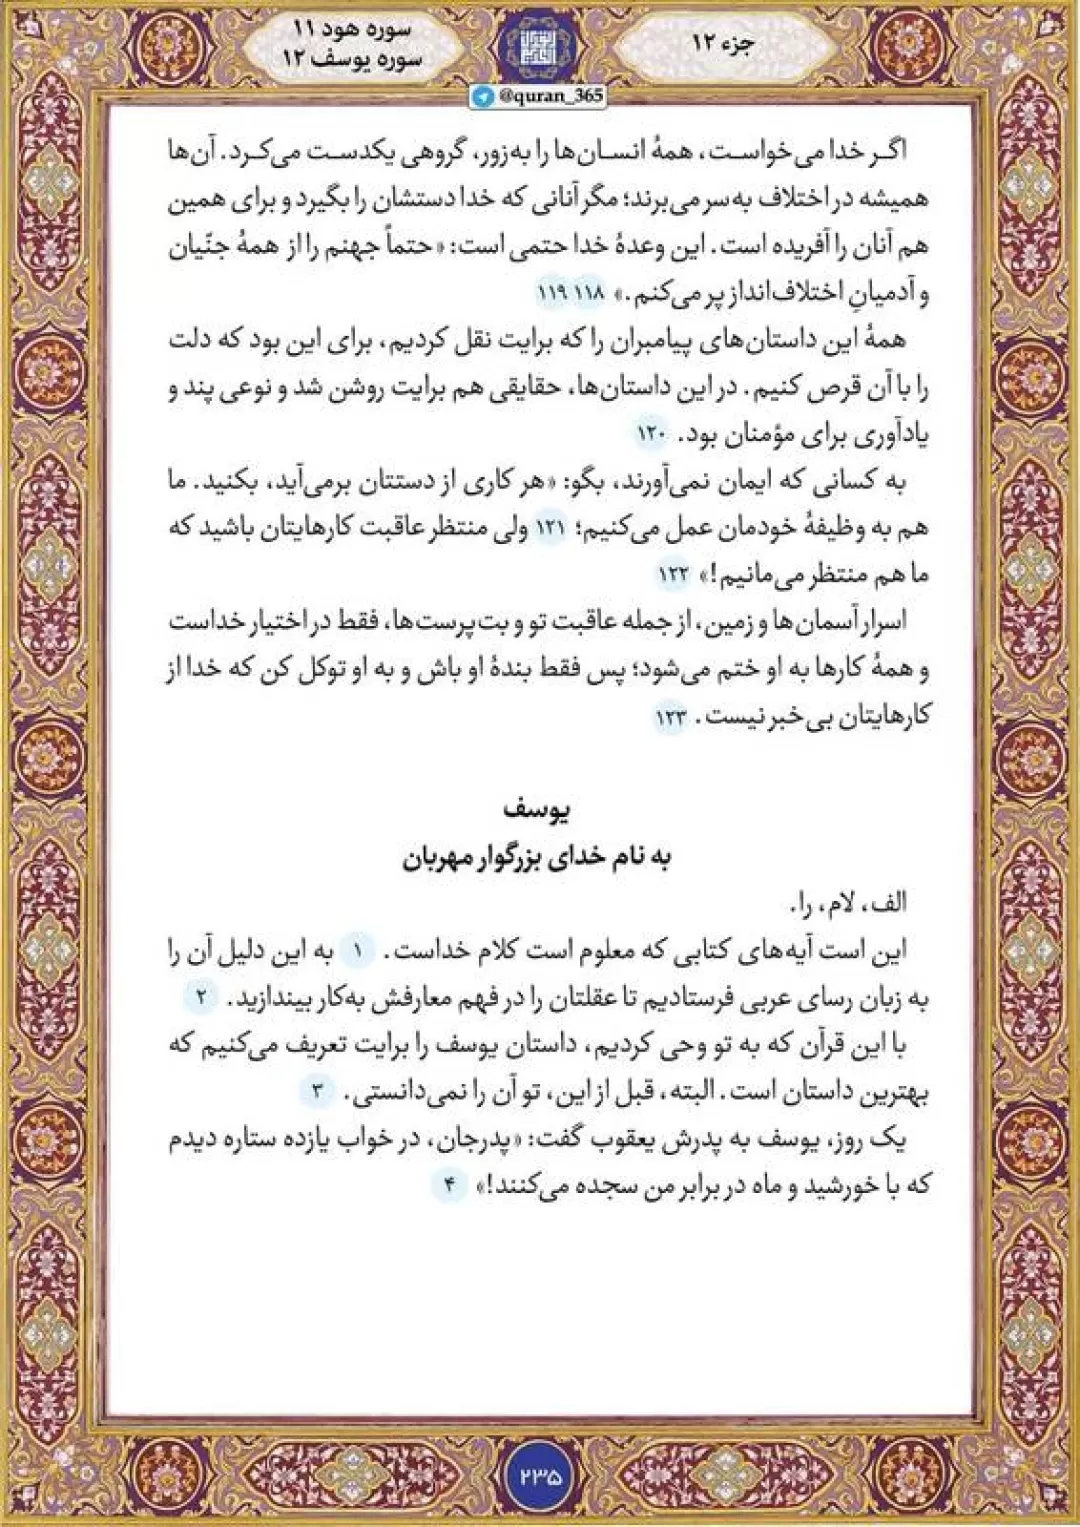 جزء ۱۲
سوره هود ۱۱
سوره یوسف ۱۲
@quran_365
اگر خدا می‌خواست، همهٔ انسان‌ها را به‌زور، گروهی یکدست می‌کرد. آن‌ها
همیشه در اختلاف به‌سر می‌برند؛ مگر آنانی که خدا دستشان را بگیرد و برای همین
هم آنان را آفریده است. این وعدهٔ خدا حتمی است: «حتماً جهنم را از همهٔ جنّیان
و آدمیانِ اختلاف‌انداز پر می‌کنم.» ۱۱۸ ۱۱۹
همهٔ این داستان‌های پیامبران را که برایت نقل کردیم، برای این بود که دلت
را با آن قرص کنیم. در این داستان‌ها، حقایقی هم برایت روشن شد و نوعی پند و
یادآوری برای مؤمنان بود. ۱۲۰
به کسانی که ایمان نمی‌آورند، بگو: «هر کاری از دستتان برمی‌آید، بکنید. ما
هم به وظیفهٔ خودمان عمل می‌کنیم؛ ۱۲۱ ولی منتظر عاقبت کارهایتان باشید که
ما هم منتظر می‌مانیم!» ۱۲۲
اسرار آسمان‌ها و زمین، از جمله عاقبت تو و بت‌پرست‌ها، فقط در اختیار خداست
و همهٔ کارها به او ختم می‌شود؛ پس فقط بندهٔ او باش و به او توکل کن که خدا از
کارهایتان بی‌خبر نیست. ۱۲۳
یوسف
به نام خدای بزرگوار مهربان
الف، لام، را.
این است آیه‌های کتابی که معلوم است کلام خداست. ۱ به این دلیل آن را
به زبان رسای عربی فرستادیم تا عقلتان را در فهم معارفش به‌کار بیندازید. ۲
با این قرآن که به تو وحی کردیم، داستان یوسف را برایت تعریف می‌کنیم که
بهترین داستان است. البته، قبل از این، تو آن را نمی‌دانستی. ۳
یک روز، یوسف به پدرش یعقوب گفت: «پدرجان، در خواب یازده ستاره دیدم
که با خورشید و ماه در برابر من سجده می‌کنند!» ۴
۲۳۵